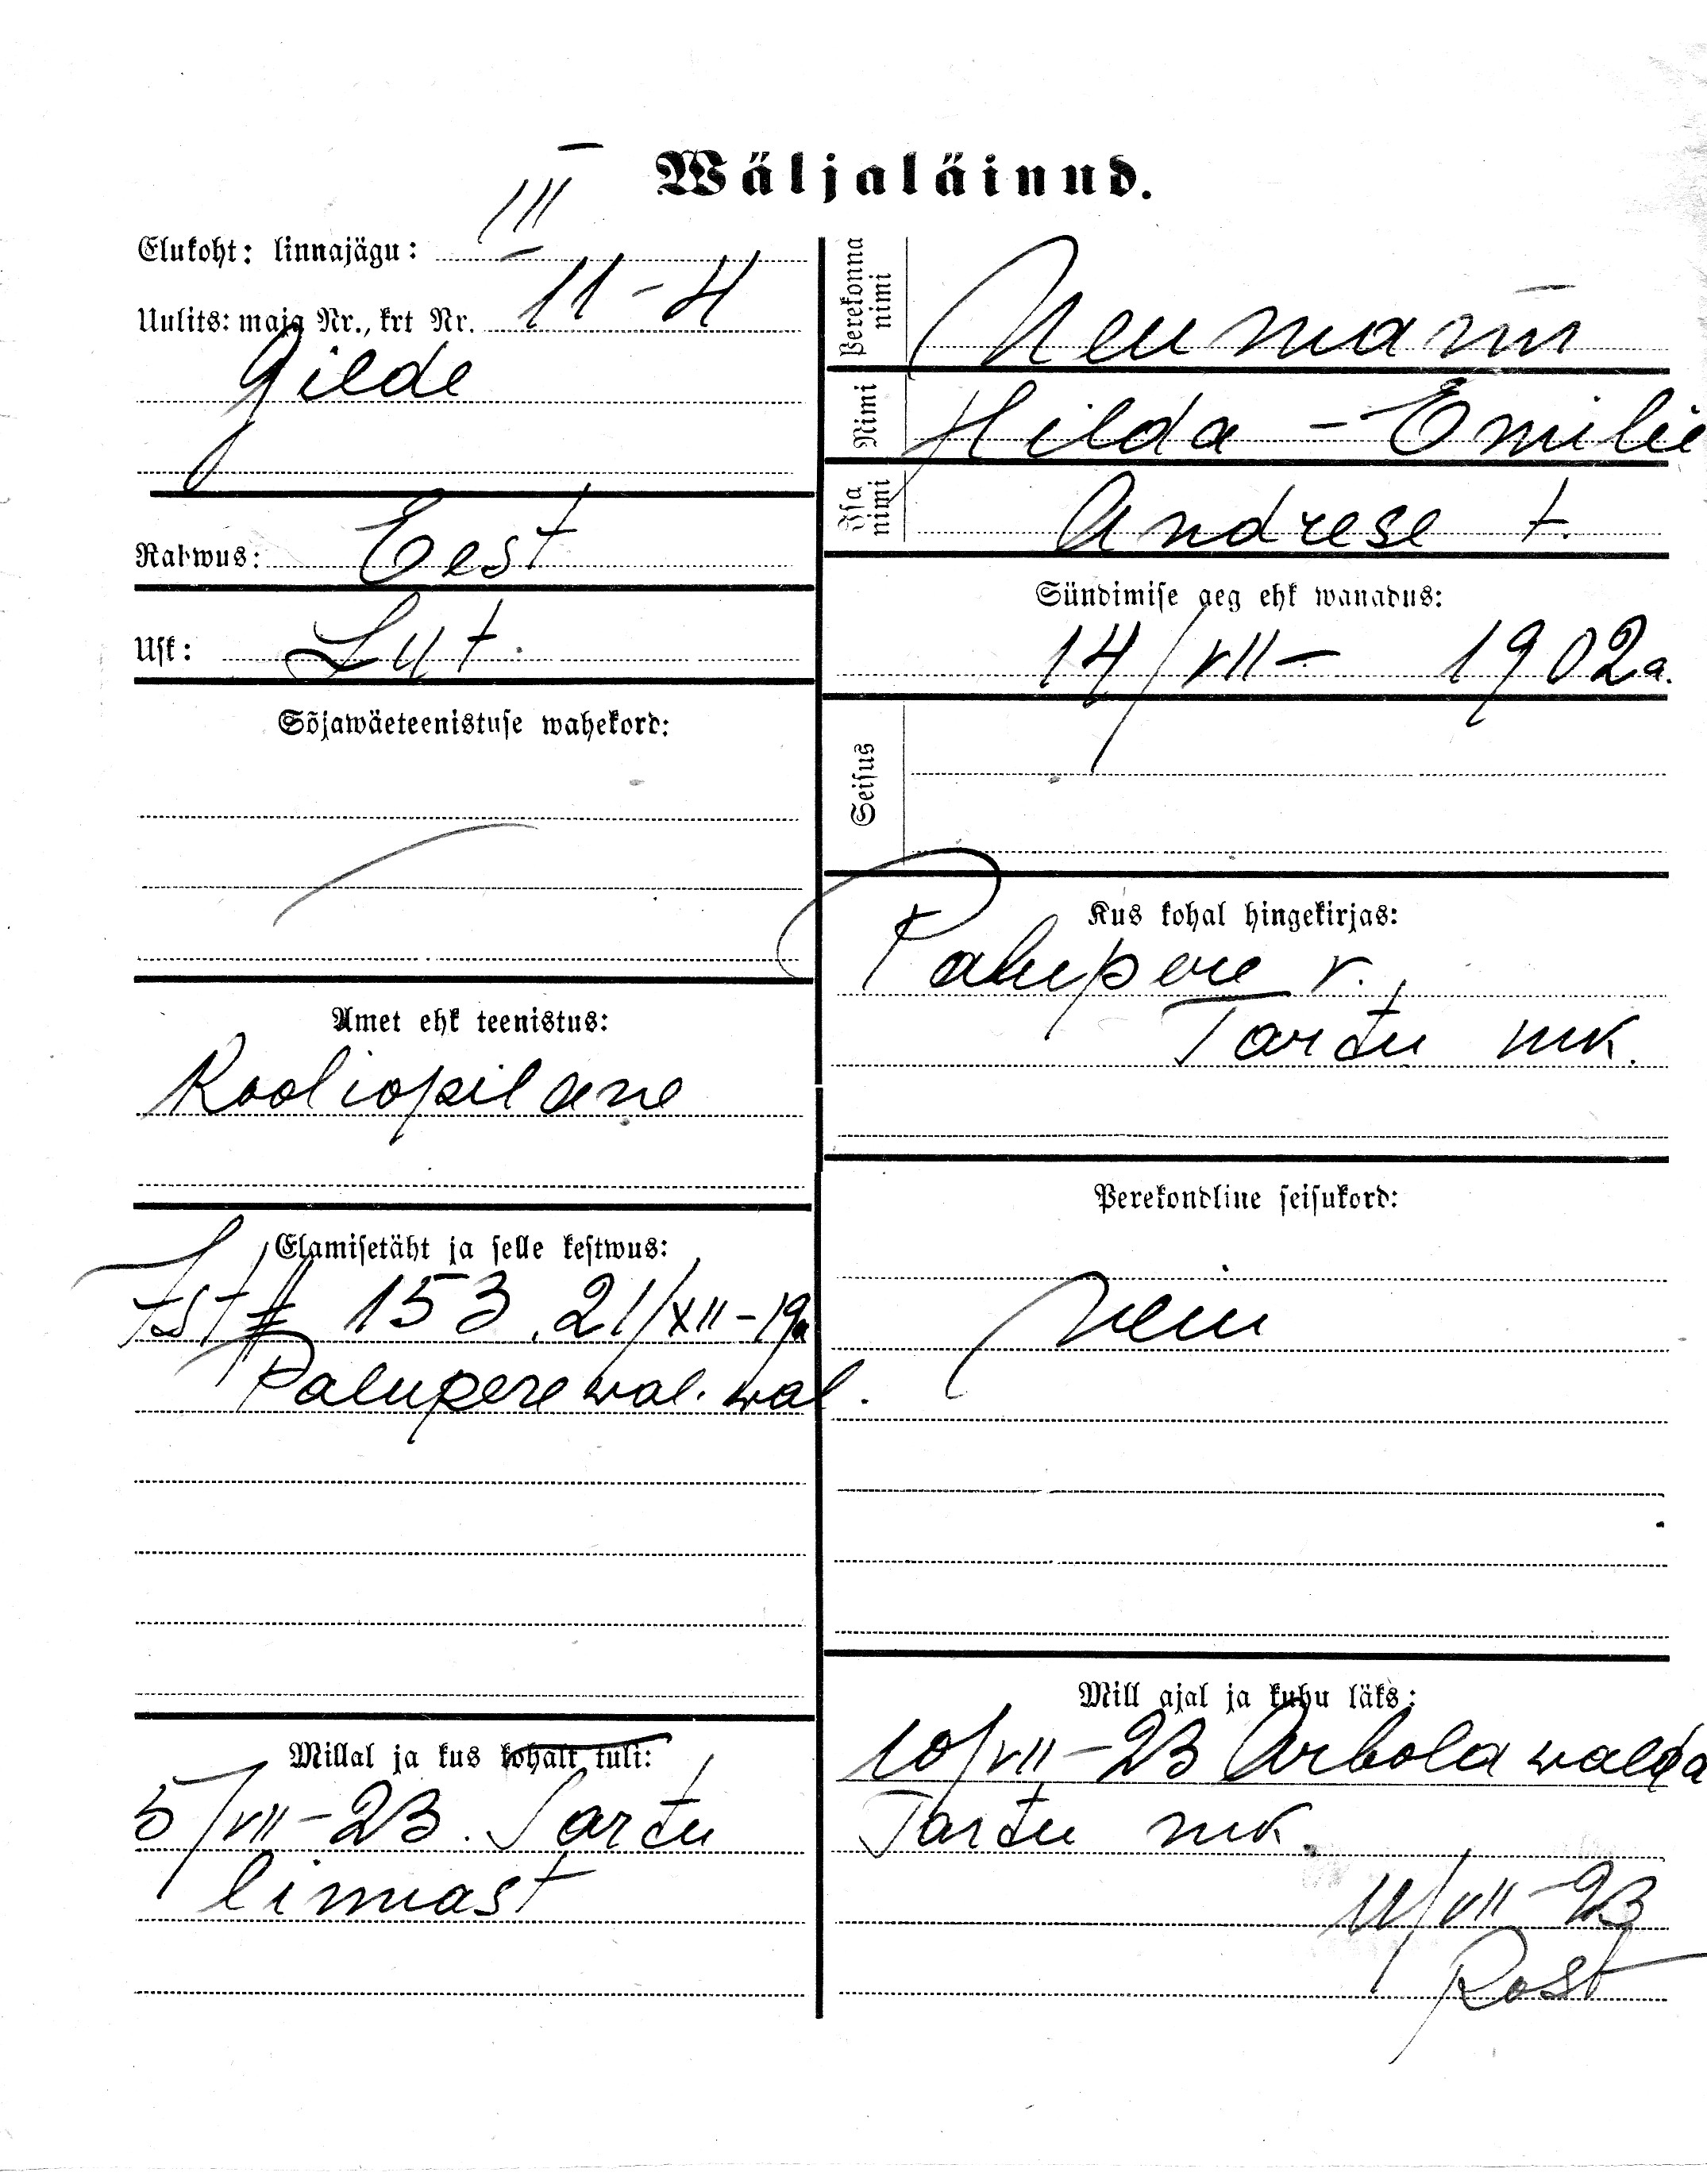 Wäljaläinud.
Elukoht: linnajägu: III
Uulits: maja Nr., krt Nr. 11-4
Gilde
Rahwus: Eest
Usk: Lut.
Sõjawäeteenistuse wahekord:
Amet ehk teenistus:
Kooliopilane
Elamisetäht ja selle kestwus:
153, 21/XII-19a
Palupere wal. wal.
Millal ja kus kohalt tuli:
5/VII-23. Tartu
linnast
Perekonna nimi
Neumann
Nimi
Hilda-Emilie
Isa nimi
Andrese t.
Sündimise aeg ehk wanadus:
14/VII- 1902a.
Seisus
Kus kohal hingekirjas:
Palupere v.,
Tartu mk.
Perekondline seisukord:
Mill ajal ja kuhu läks:
10/VII-23 Arbola walda
Tartu mk.
11/VII-23
Rost